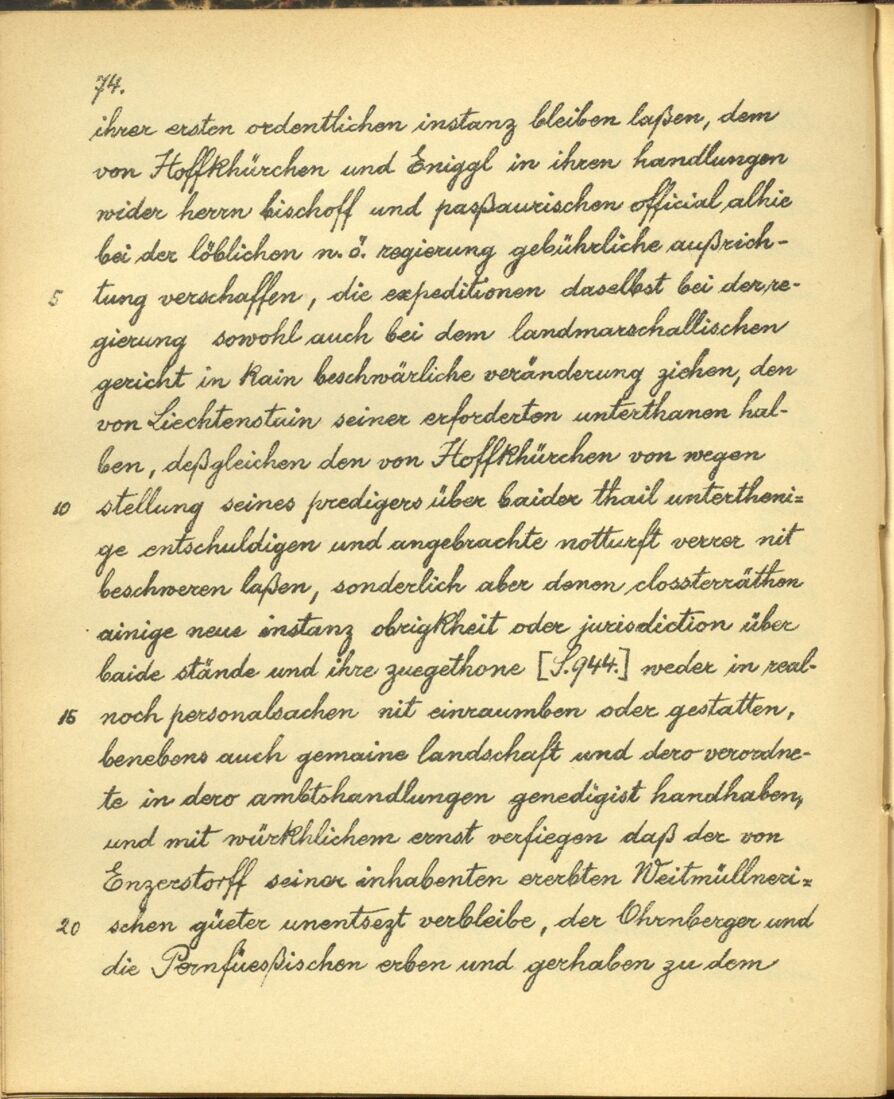 74.
ihrer ersten ordentlichen instanz bleiben laßen, dem
von Hoffkhürchen und Eniggl in ihren handlungen
wider herrn bischoff und paßaurischen official alhie
bei der löblichen n. ö. regierung gebührliche außrich-
5 tung verschaffen, die expeditionen daselbst bei der re-
gierung sowohl auch bei dem landmarschallischen
gericht in kain beschwärliche veränderung ziehen, den
von Liechtenstain seiner erforderten unterthanen hal-
ben, deßgleichen den von Hoffkhürchen von wegen
10 stellung seines predigers über baider thail untertheni=
ge entschuldigen und angebrachte notturft verrer nit
beschweren laßen, sonderlich aber denen clossterräthen
ainige neue instanz obrigkheit oder jurisdiction über
baide stände und ihre zuegethone [S. 944.] weder in real-
15 noch personalsachen nit einraumben oder gestatten,
benebens auch gemaine landschaft und dero verordne-
te in dero ambtshandlungen genedigist handhaben,
und mit würkhlichem ernst verfiegen daß der von
Enzerstorff seiner inhabenten ererbten Weitmüllneri=
20 schen güeter unentsezt verbleibe, der Ohrnberger und
die Pernfüeßischen erben und gerhaben zu dem